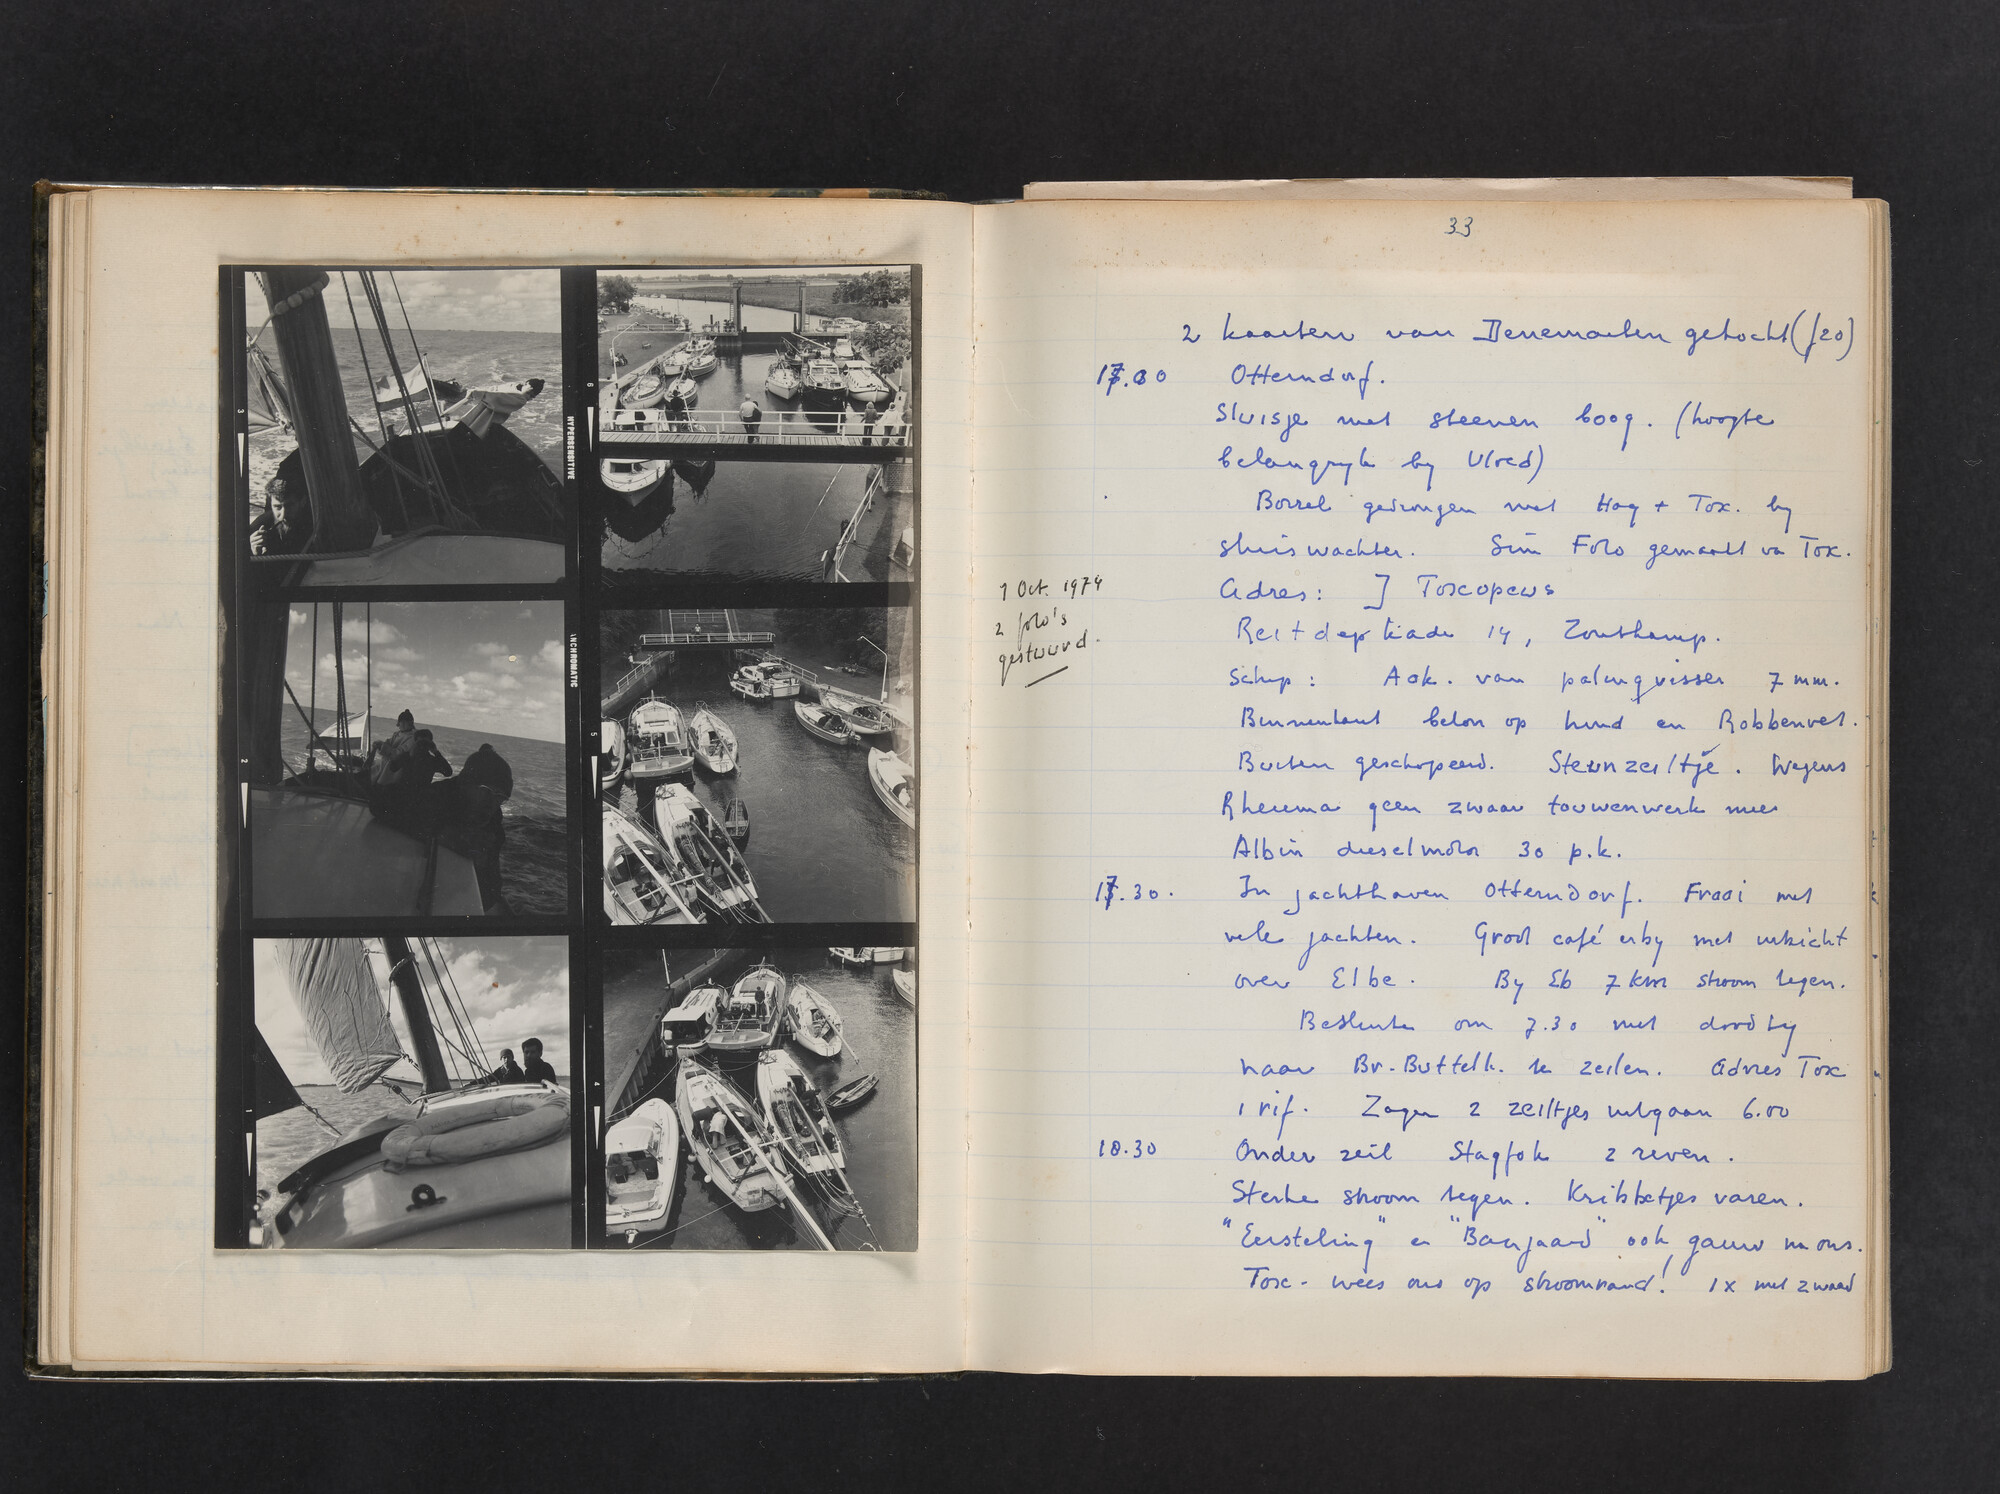 3
HYPERSENSITIVE
2
NCHROMATIC
1
6
5
4
33
2 kaarten van Denemarken gekocht (f20)
17.00 Otterndorf.
Sluisje met steenen boog. (hoogte
belangryk by Vloed)
Borrel gedrongen met Hag + Tox. by
sluiswachter. Foto gemaakt va Tox.
1 Oct. 1974
2 foto's
gestuurd.
Adres: ] Toxopeus
Reitdiepkade 14, Zoutkamp.
Schip: Aak. van palingvisser 7 mm.
Binnenkant beton op huid en Robbenvet.
Buiten geschopeerd. Steunzeiltje. Wegens
Rheuma geen zwaar touwenwerk meer
Albin dieselmotor 30 p.k.
17.30. In jachthaven Otterndorf. Fraai met
vele jachten. Groot café erby met uitzicht
over Elbe. By Eb 7 km stroom tegen.
Besluiten om 7.30 met doodty
naar Br. Buttelh. te zeilen. Advies Tox
1 rif. Zagen 2 zeiltjes uitgaan 6.00
18.30 Onder zeil Stagfok 2 reven.
Sterke stroom tegen. Kribbetjes varen.
"Eersteling" en "Banjaard" ook gauw na ons.
Tox. wees ons op stroomrand! 1x met zwaard